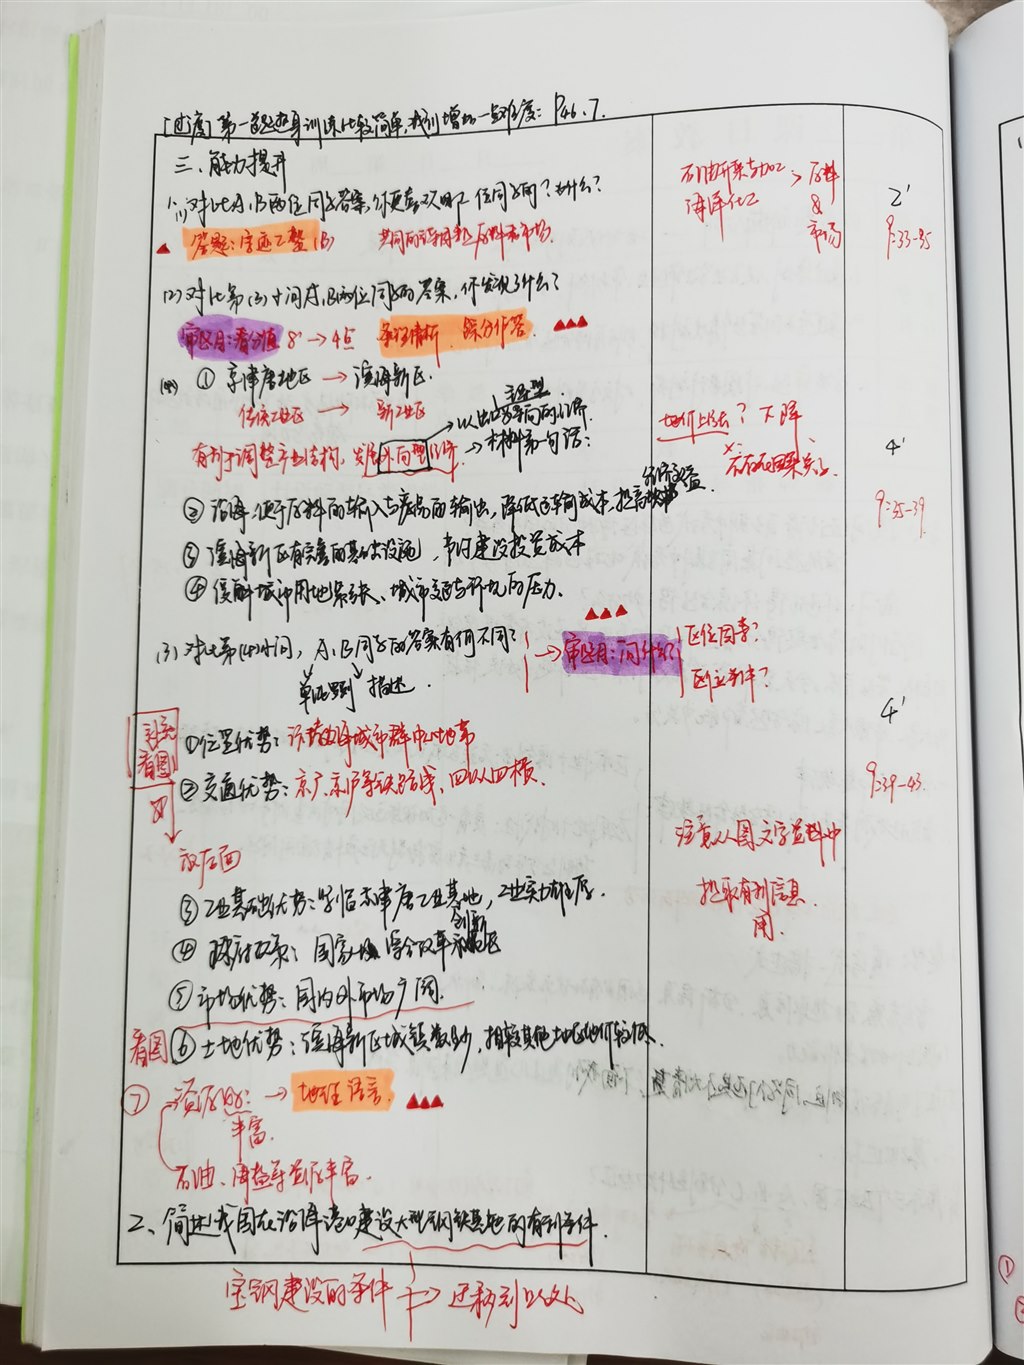 [过度] 第一题热身训练比较简单,我们增加一点难度: P46.7.
三、能力提升
1.(1)对比A、B两位同学答案,你更喜欢哪一位同学的?为什么?
答题:字迹工整(B)
共同的诱因是原料和市场.
石油开采与加工 > 原料
海洋化工 & 市场
2'
9:33-35
(2)对比第(3)小问A、B两位同学的答案,你发现了什么?
审题目:看分值 8' → 4点 条理清晰、踩分作答
① 京津唐地区 → 滨海新区.
传统工业区 → 新工业区
有利于调整产业结构,发展外向型经济
→以出口为导向的经济.
→材料第一句话:
地价上涨? 下降
×右右因果关系
4'
9:35-39
② 沿海:便于原料的输入与产品的输出,降低运输成本,提高经济效益.
③ 滨海新区有完善的基础设施,节约建设投资成本
④ 缓解城市用地紧张、城市交通与环境的压力.
(3)对比第(4)小问,A、B同学的答案有何不同?
→ 审题目:问什么?
区位因素?
区位条件?
描述.
4'
9:39-43.
补充看图
①位置优势:
城市群中心地带
②交通优势:京广、京沪等铁路线,四纵四横.
放后面
注意从图文字资料中
提取有利信息
用.
③ 工业基础优势:紧临京津唐工业基地,工业实力雄厚.
④ 政府政策:国家级综合改革创新区
⑤ 市场优势:国内外市场广阔.
看图 ⑥ 土地优势:滨海新区城镇数量少,相较其他地区地价较低.
⑦ 资源优: → 地理语言
丰富.
石油、海盐等资源丰富.
2、简述我国在沿海港口建设大型钢铁基地的有利条件.
宝钢建设的条件 → 迁移到此处